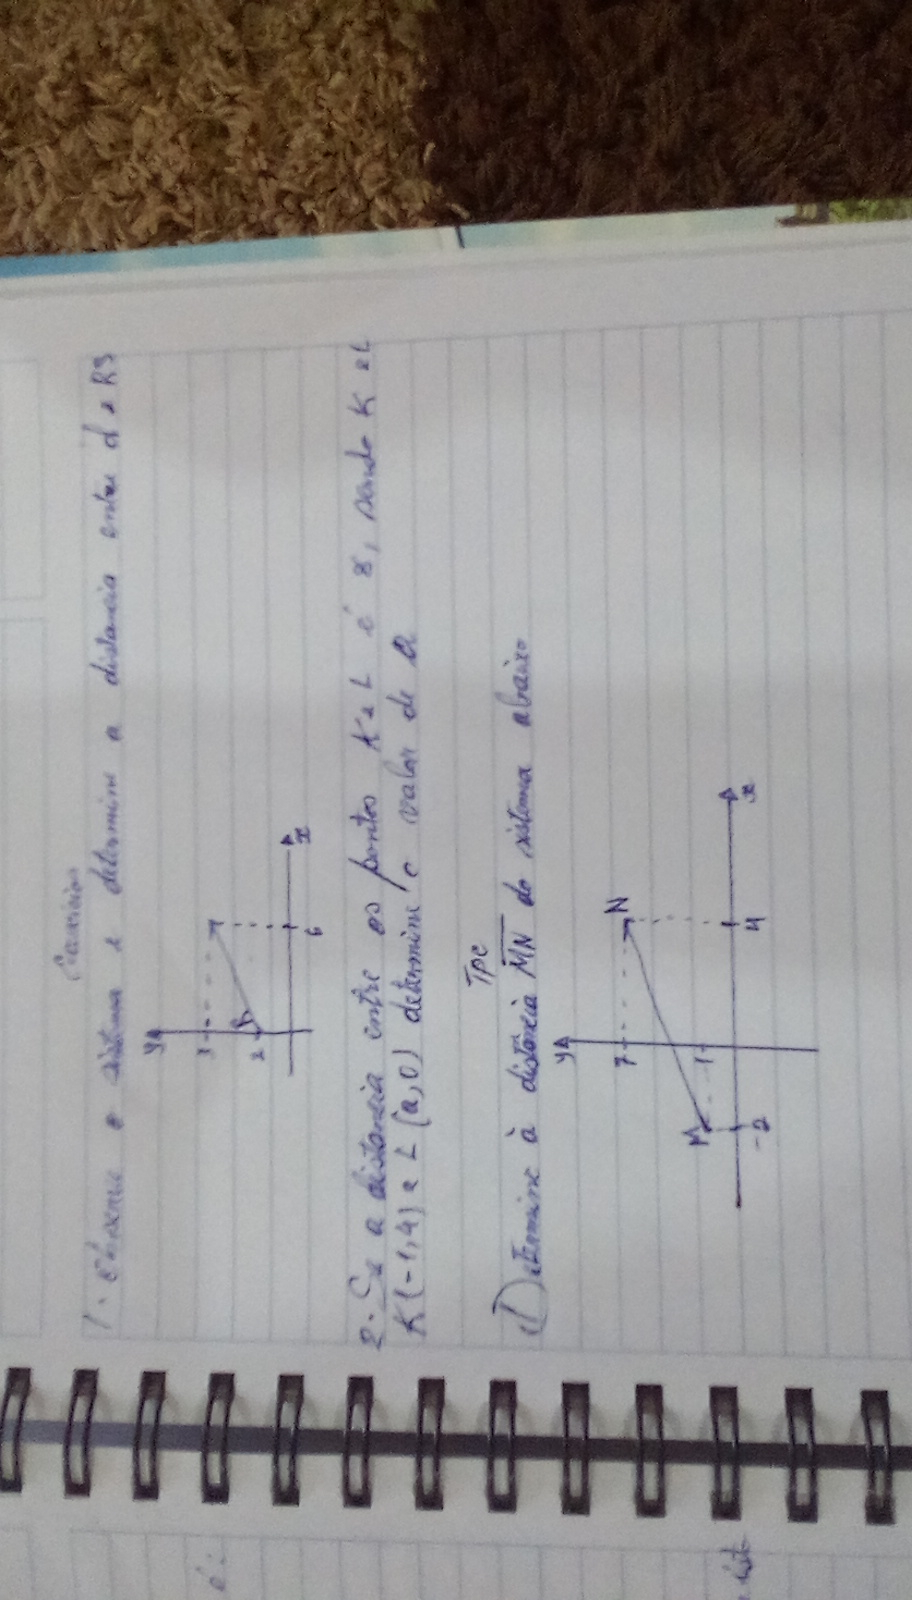 Exercicios
1. Observe o sistema e determine a distancia entre d e RS
y
3
2
R
6
x
2. Se a distancia entre os pontos K e L é 8, sendo K e L
K(-1,4) e L (a,0) determine o valor de a
TPC
1) Determine à distância MN do sistema abaixo
y
7
N
1
M
-2
4
x
é: